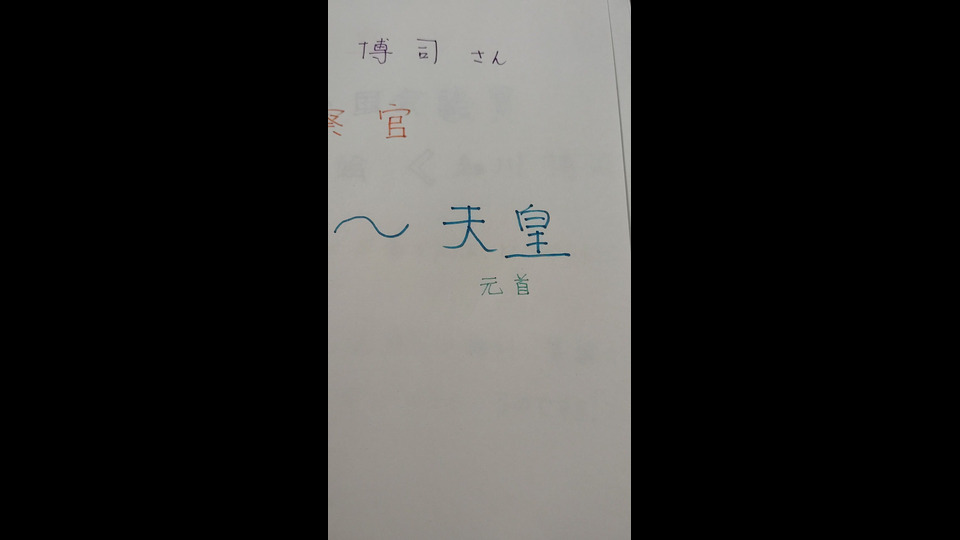 博司 さん
察官
〜 天皇
元首